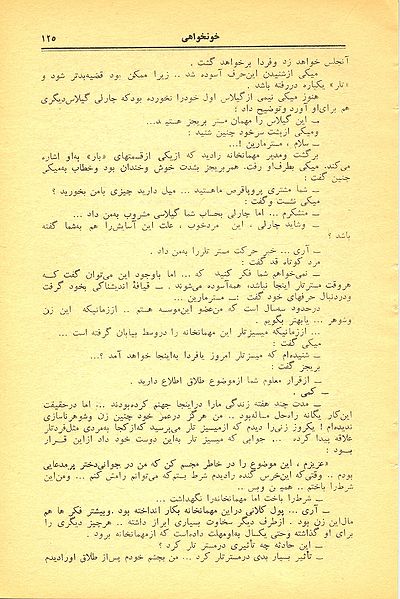 خونخواهی
۱۲۵
آنجلس خواهد زد وفردا برخواهد گشت .
میکی ازشنیدن این‌حرف آسوده شد .. زیرا ممکن بود قضیه‌بدتر شود و
«تلر» یکباره دررفته باشد .
هنوز میکی نیمی ازگیلاس اول خودرا نخورده بودکه چارلی گیلاس‌دیگری
هم برای‌او آورد وتوضیح داد :
ــ این گیلاس را مهمان مستر بریجز هستید...
ومیکی ازپشت سرخود چنین شنید :
ــ سلام ، مسترمارین !...
برگشت ومدیر مهمانخانه رادید که ازیکی ازقسمتهای «بار» به‌او اشاره
می‌کند. میکی بطرف‌او رفت. همربریجز بشدت خوش وخندان بود وخطاب به‌میکی
چنین گفت :
ــ شما مشتری پروپاقرص ماهستید ... میل دارید چیزی بامن بخورید ؟
میکی نشست وگفت :
ــ متشکرم ... اما چارلی بحساب شما گیلاسی مشروب به‌من داد ...
ــ وشاید چارلی ، این مردخوب ، علت این آسایش‌را هم به‌شما گفته
باشد ؟
ــ آری ... خبر حرکت مستر تلررا به‌من داد .
مرد کوتاه قد گفت :
ــ نمی‌خواهم شما فکر کنید که ... اما باوجود این می‌توان گفت کـه
هروقت مسترتلر اینجا نباشد، همه‌آسوده می‌شوند . ــ قیافهٔ اندیشناکی بخود گرفت
ودردنبال حرفهای خود گفت :ــ مسترمارین ...
درحدود سه‌سال است که من‌عضو این‌موسسه هستم .. اززمانیکه این زن
وشوهر ... یابهتر بگویم .
... اززمانیکه میسیزتلر این مهمانخانه را دروسط بیابان گرفته است ...
میکی گفت :
ــ شنیده‌ام که میسیزتلر امروز یافردا به‌اینجا خواهد آمد ؟...
بریجز گفت :
ــ ازقرار معلوم شما ازموضوع طلاق اطلاع دارید .
ــ کمی .
ــ مدت چند هفته زندگی مارا دراینجا جهنم کرده‌بودند ... اما درحقیقت
این‌کار یگانه راه‌حل مساله‌بود .. من هرگز درعمر خود چنین زن وشوهرناسازی
ندیده‌ام ! یکروز زنی‌را دیدم که ازمیسیز تلر می‌پرسید که‌ازکجا به‌مردی مثل‌فردتلر
علاقه پیدا کرده ... جوابی که میسیز تلر به‌این دوست خود داد ازاین قـــرار
بـود :
«عزیزم ، این موضوع را در خاطر مجسم کن که من در جوانی‌دختر پرمدعایی
بودم .. وقتی‌که این‌خرس گنده رادیدم شرط بستم‌که می‌توانم رامش کنم ... ومن‌این
شرط‌را باختم .. همین وبس ..
ــ شرط‌را باخت اما مهمانخانه‌را نگهداشت ...
ــ آری ... پول کلانی دراین مهمانخانه بکار انداخته بود .وبیشتر فکر ها هم
مال‌این زن بود . ازطرف دیگر سخاوت بسیاری ابراز داشته .. هرچیز دیگری را
برای او گذاشته وحتی یکسال به‌اومهلت داده‌است که ازمهمانخانه برود .
ــ این حادثه چه تأثیری درمستر تلر کرد ؟
ــ تأثیر بسیار بدی درمسترتلر کرد ... من بچشم خودم پس‌از طلاق اورادیدم